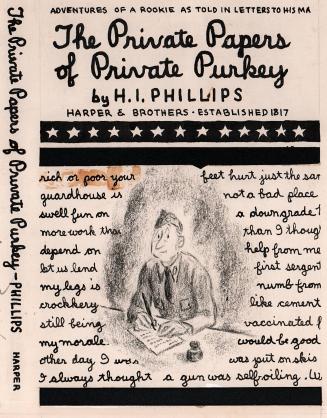 ADVENTURES OF A ROOKIE AS TOLD IN LETTERS TO HIS MA
The Private Papers
of Private Purkey
by H.I. PHILLIPS
HARPER & BROTHERS · ESTABLISHED 1817
rich or poor your feet hurt just the sam
guardhouse is not a bad place
swell fun on a downgrade
more work than than I though
depend on help from me
let us lend first sergean
my legs is numb from
crockkery like cement
still being vaccinated f
my morale would be good
other day I was was put on skis
I always thought a gun was self-oiling. We
The Private Papers of Private Purkey — PHILLIPS HARPER